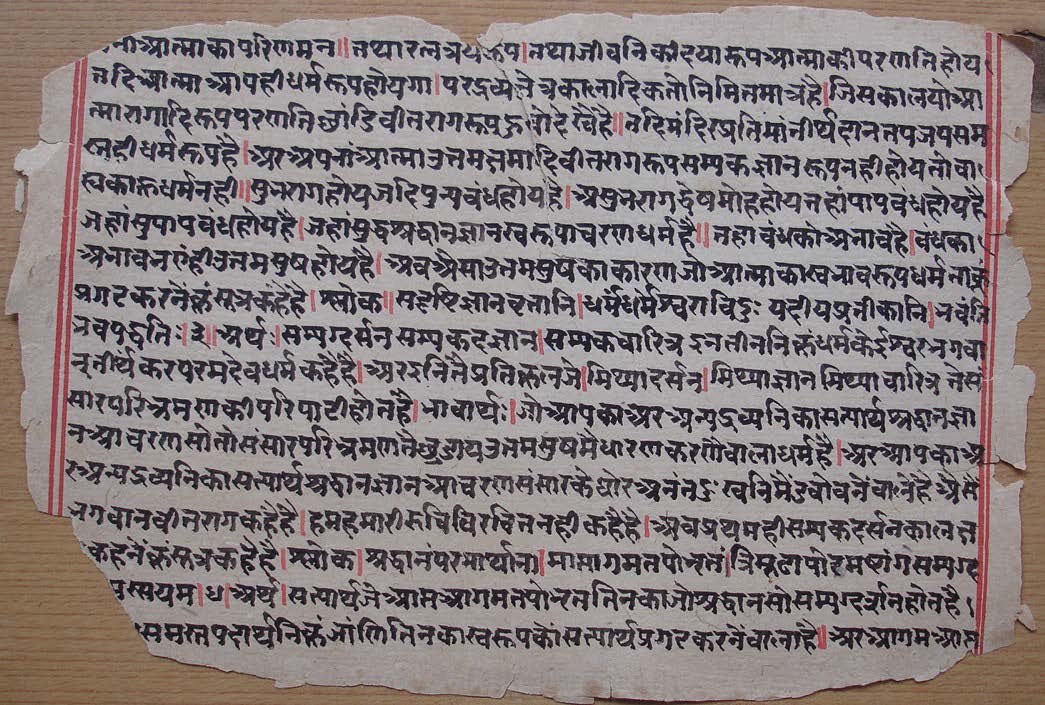 आत्माका परिणमन॥ तथा रत्नत्रयरूप। तथा जीवनिकी दयारूप आत्माकी परणति होय
तदि आत्मा आपही धर्मरूप होयगा। परद्रव्य क्षेत्र कालादिक तो निमित्तमात्र है। जिसकाल यो आ
त्मा रागादिरूप परणति छांडि वीतरागरूप हुवो देखै है॥ तदि मंदिर प्रतिमां तीर्थ दान तप जप सम
स्तही धर्मरूप है। अर अपनां आत्मा उत्तमक्षमादि वीतरागरूप सम्यकज्ञानरूप नही होय तो वा
ह्यकाल धर्म नही॥ सुभ राग होय जदि पुन्यबंध होय है। असुभ राग द्वेष मोह होय तहां पापबंध होय है
जहां सुपापबंध होय है। जहां सुद्ध श्रद्धान ज्ञान स्वरूपाचरण धर्म है॥ तहा बंधको अभाव है। बंधका
अभाव भएंही उत्तम सुष होय है। अब अैसा उत्तम सुषका कारण जो आत्माका स्वभावरूप धर्म ताकूं
प्रगट करनेंकूं सूत्र कहे है। श्लोक॥ सदृष्टिज्ञानवृत्तानि। धर्मं धर्मेश्वरा विदुः यदीयप्रत्नीकानि। भवंति
भवपद्धतिः। ३॥ अर्थः। सम्यग्दर्सन सम्यकज्ञान। सम्यकचारित्र इन तीननिकूं धर्मके ईश्वर भगवा
न् तीर्थकर परमदेव धर्म कहै है। अर इनितै प्रतिकूल जे। मिथ्यादर्सन। मिथ्याज्ञान मिथ्याचारित्र ते सं
सार परिभ्रमणकी परिपाटी होत है। भावार्थः। जो आपका अर अन्यद्रव्यनिका सत्यार्थ श्रद्धान ज्ञा
न आचरण सो तो संसार परिभ्रमणतै छुडाय उत्तम सुषमै धारण करणैवाला धर्म है। अर आपका अ
र अन्यद्रव्यनिका सत्यार्थ श्रद्धान ज्ञान आचरण संसारके घोर अनंत दुःखनिमै डुबोवनेंवाले है अैसे
भगवान वीतराग कहै है। हम हमारी रुचि विरचित नही कहै है। अब प्रथमही सम्यकदर्सनका लक्ष
कहनेंकूं सूत्र कहै है। श्लोक। श्रद्धानं परमार्थाना। माप्तागमतपोभृतां। त्रिमूढापोढमष्टांग सम्यग्द
स्मयम। ४। अर्थ। सत्यार्थ जे आप्त आगम तपोभृत तिनका जो श्रद्धान सो सम्यग्दर्शन होत है।
समस्त पदार्थनिकूं जांणि तिनका स्वरूपकों सत्यार्थ प्रगट करनेंवाला है॥ अर आगम आप्त